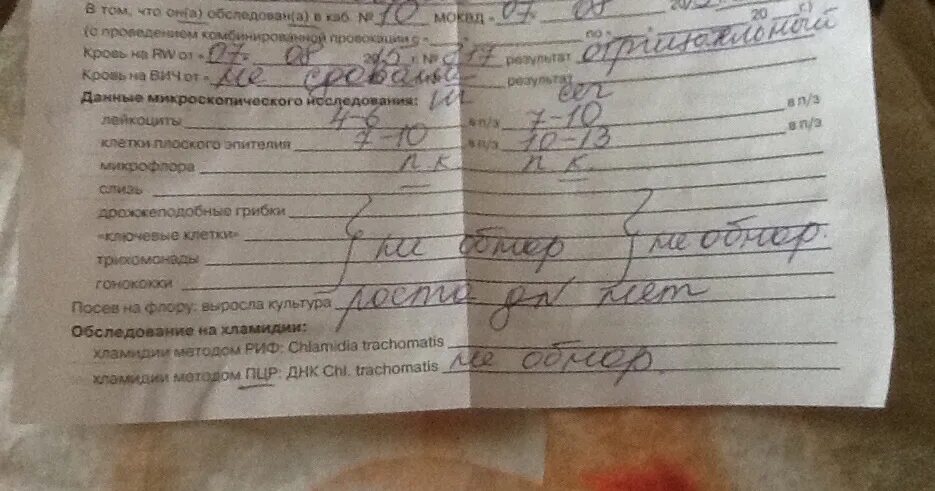 В том, что он(а) обследован(а) в каб. № 10 МОКВД «07» 08 20
(с проведением комбинированной провокации с «    » по «    » 20    г.)
Кровь на RW от «07» 08 2015 № 317 результат отрицательный
Кровь на ВИЧ от «не сдавали результат
Данные микроскопического исследования:
лейкоциты 4-6 в п/з 7-10 в п/з
клетки плоского эпителия 7-10 в п/з 10-13 в п/з
микрофлора п. к. п. к.
слизь —
дрожжеподобные грибки
«ключевые клетки» не обнар не обнар.
трихомонады
гонококки
Посев на флору: выросла культура роста нет
Обследование на хламидии:
хламидии методом РИФ: Chlamidia trachomatis
хламидии методом ПЦР: ДНК Chl. trachomatis не обнар.